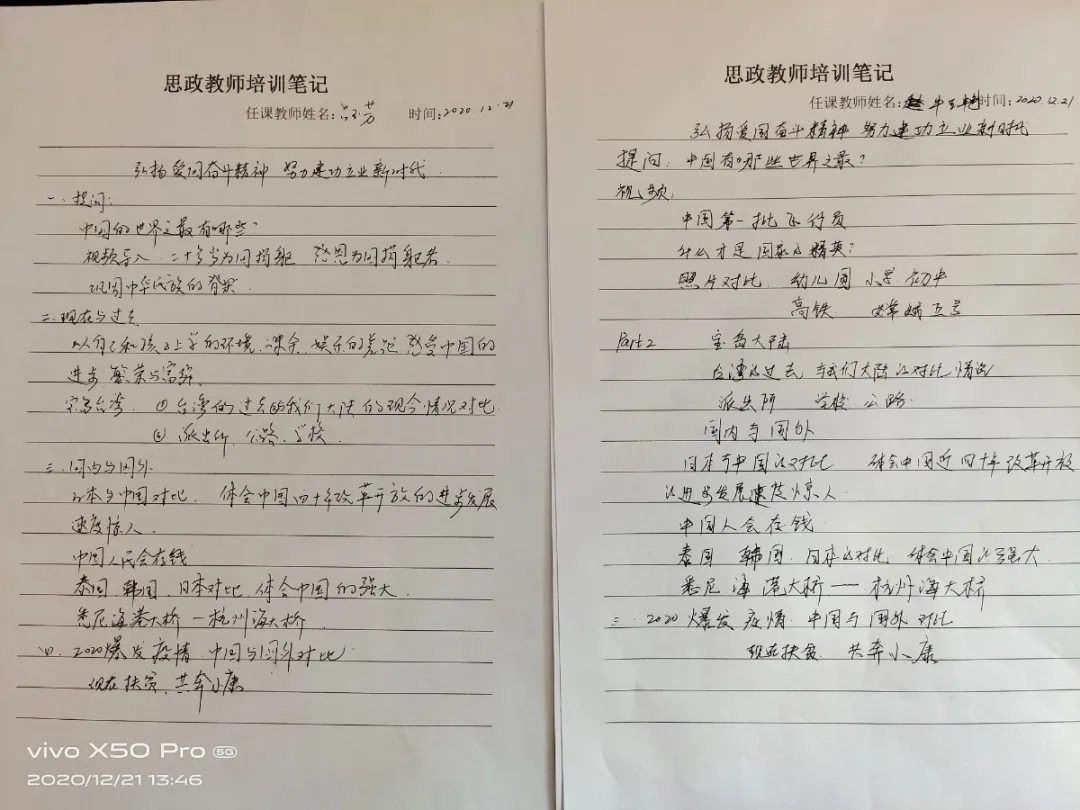 思政教师培训笔记
任课教师姓名: 时间:2020.12.21
弘扬爱国奋斗精神 努力建功立业新时代
一、提问:
中国的世界之最有哪些?
视频导入 二十多岁为国捐躯 感恩为国捐躯者
巩固中华民族的脊梁
二、现在与过去
从自己和孩子上学的环境、课余、娱乐的 感受中国的
进步 繁荣与富强
宝岛台湾. ①台湾的过去的我们大陆的现今情况对比
② 派出所、公路、学校.
三.国内与国外
日本与中国对比. 体会中国四十年改革开放的进步发展
速度惊人.
中国人民会存钱
泰国 韩国、日本对比、体会中国的强大.
悉尼海港大桥—杭州海大桥
四、2020爆发疫情、中国与国外对比
现在扶贫、共奔小康
思政教师培训笔记
任课教师姓名: 时间:2020.12.21
弘扬爱国奋斗精神 努力建功立业新时代
提问: 中国有哪些世界之最?
视频:
中国第一批飞行员
什么才是国家的精英?
照片对比. 幼儿园 小学 初中
高铁. 嫦娥五号
Part2 宝岛大陆
台湾的过去 与我们大陆的对比情况
派出所 学校 公路.
国内与国外
日本与中国的对比 体会中国近四十年改革开放
的进步发展速度惊人.
中国人会存钱
泰国 韩国. 日本的对比 体会中国的强大.
悉尼海港大桥——杭州海大桥
三. 2020爆发疫情. 中国与国外对比
现在扶贫. 共奔小康
vivo X50 Pro 5G
2020/12/21 13:46